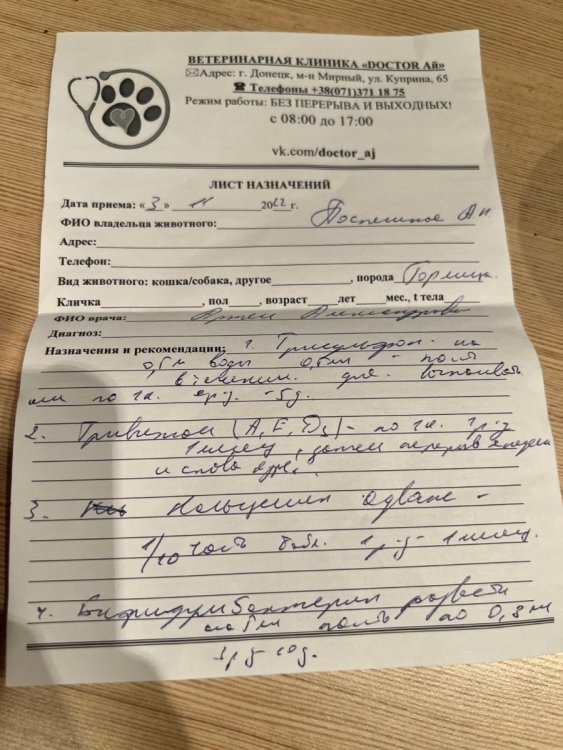 ВЕТЕРИНАРНАЯ КЛИНИКА «DOCTOR Ай»
Адрес: г. Донецк, м-н Мирный, ул. Куприна, 65
Телефоны +38(071)371 18 75
Режим работы: БЕЗ ПЕРЕРЫВА И ВЫХОДНЫХ!
с 08:00 до 17:00
vk.com/doctor_aj
ЛИСТ НАЗНАЧЕНИЙ
Дата приема: «3» 11 2022 г.
ФИО владельца животного:
Адрес:
Телефон:
Вид животного: кошка/собака, другое , порода Горлица
Кличка , пол , возраст лет мес., t тела
ФИО врача: Артем Александрович
Диагноз:
Назначения и рекомендации: 1. Трисульфон на
0,5л воды 0,5гр
в течении дня
или по 1к. 5д.
2. Тривитом (А, Е, D3) - по 1к. 1р-д
1 месяц, затем перерыв
и снова курс.
3. Кальцемин адванс -
1/10 часть табл. 1р-д - 1 месяц.
4. Бифидумбактерин развести
на поить по 0,3мл